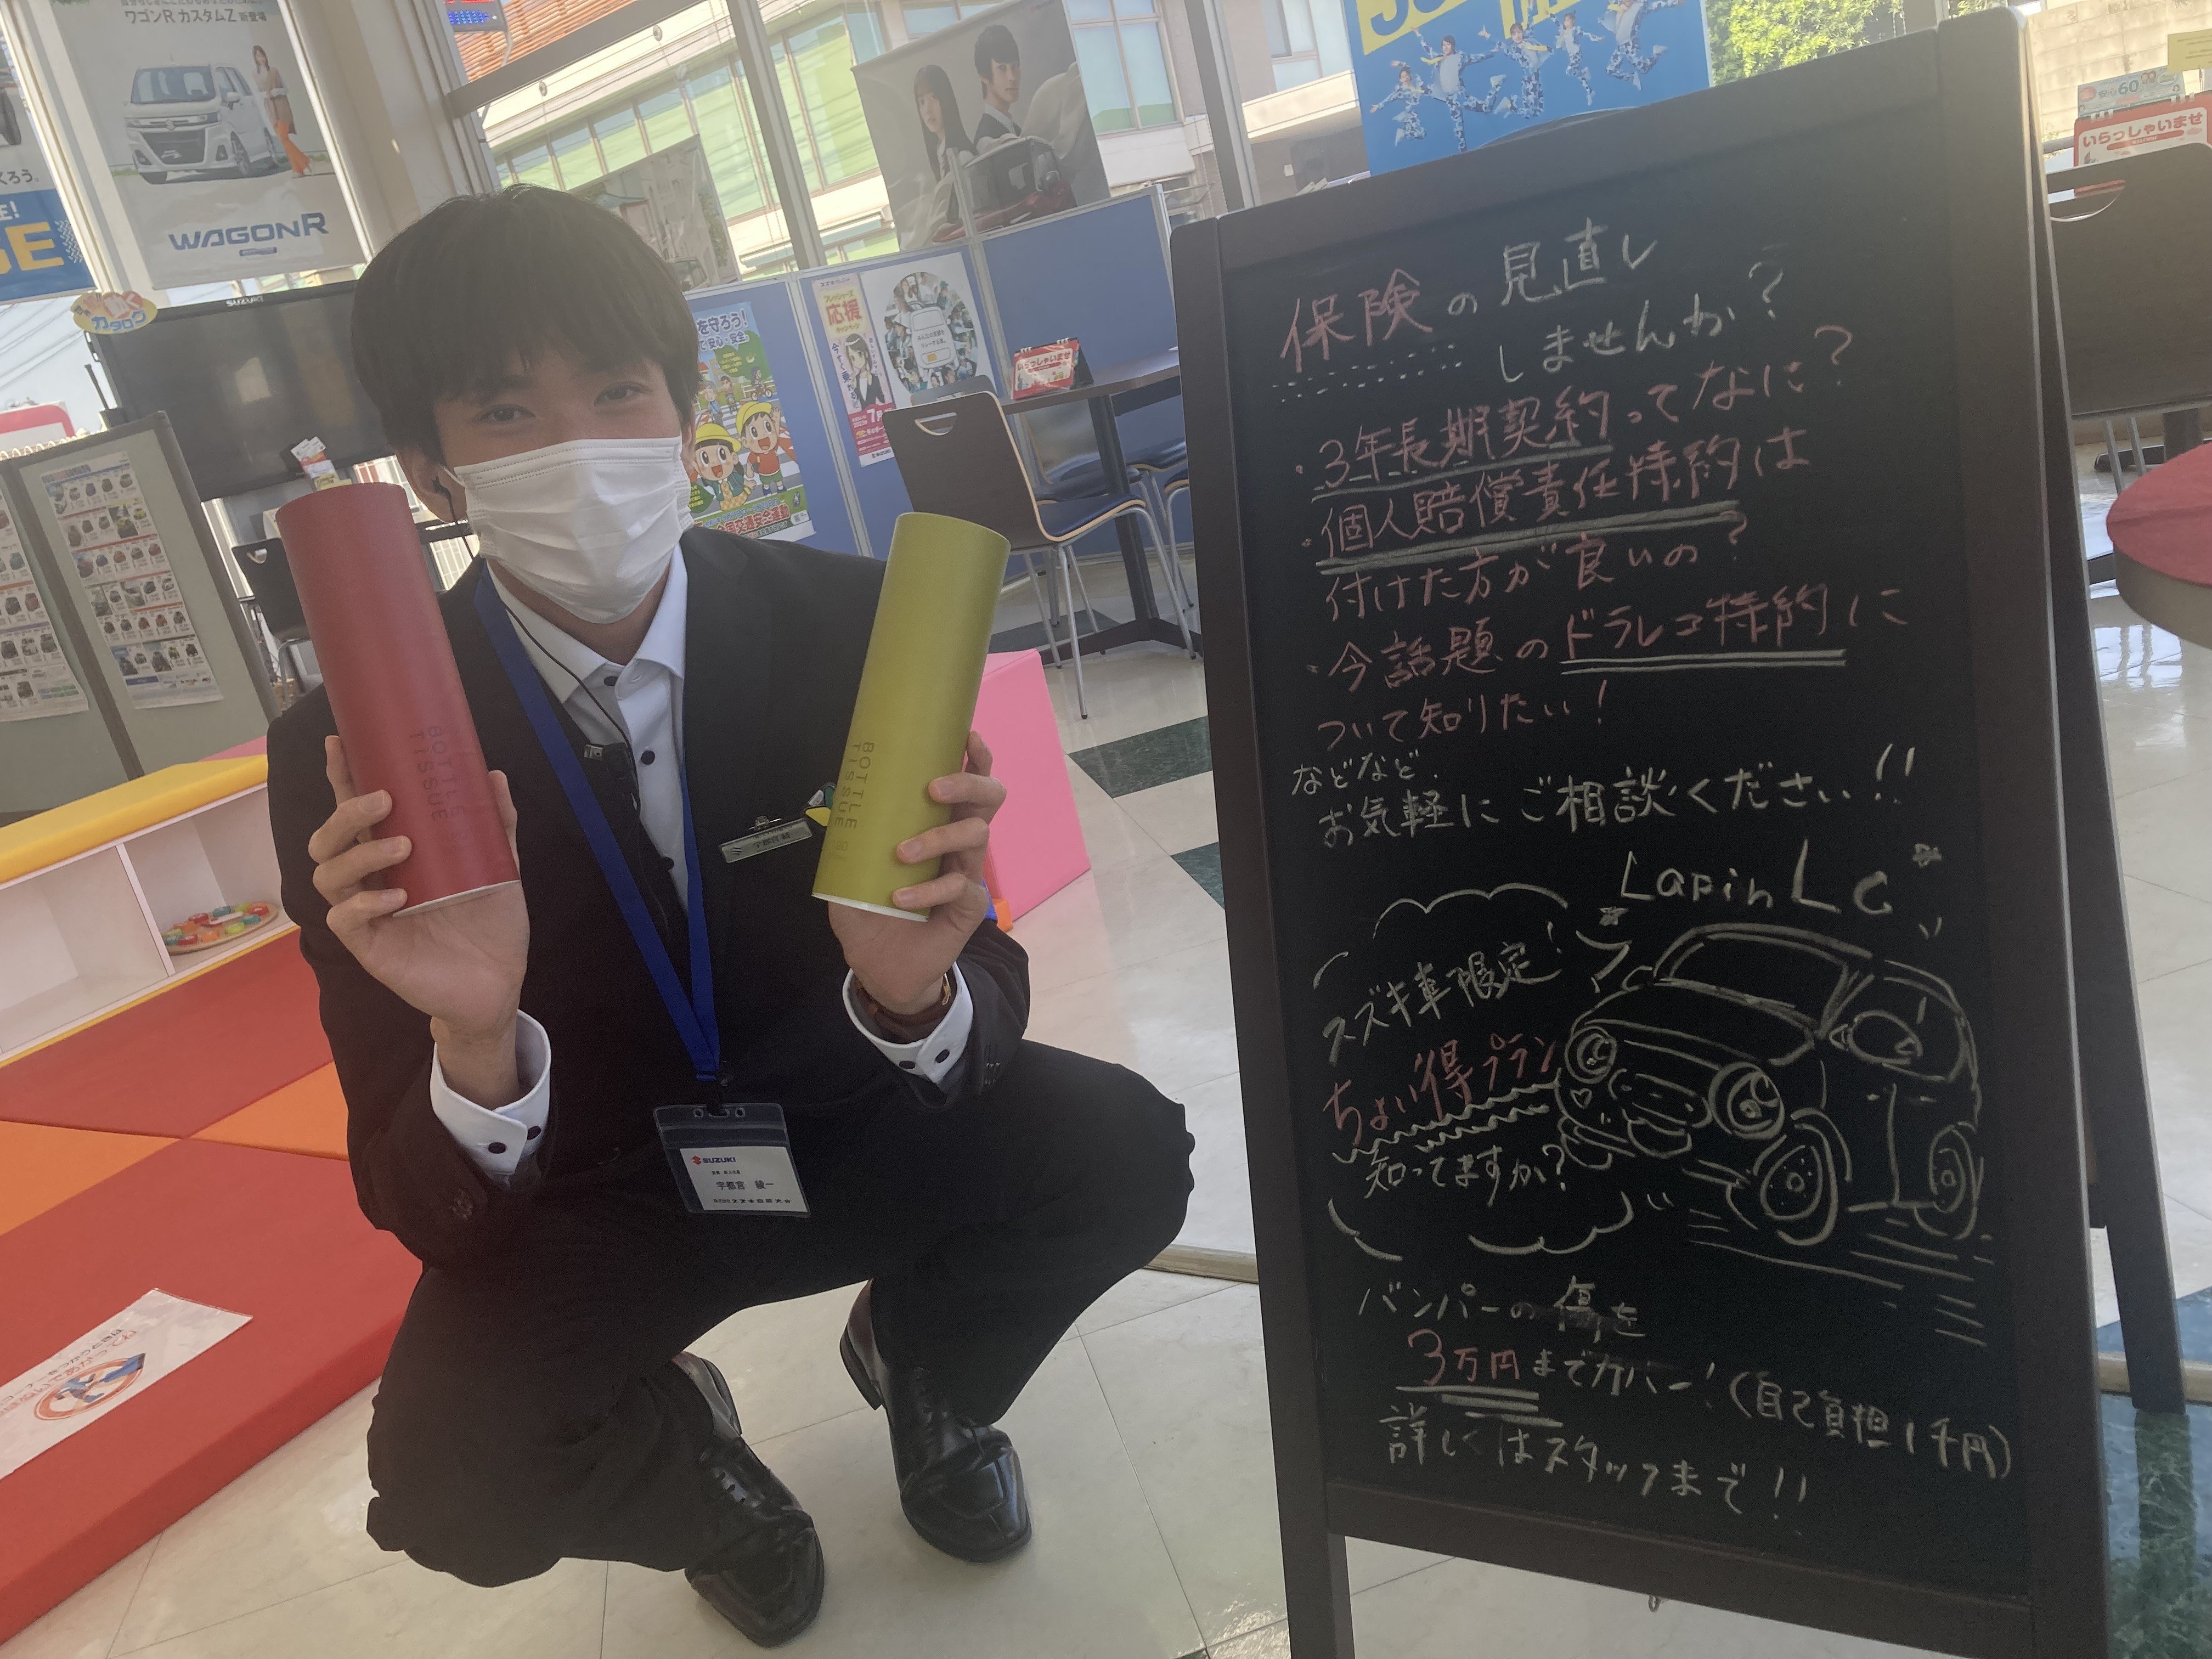 ワゴンR カスタムZ 新登場
WAGONR
SUZUKI
カタログ
を守ろう!
応援
いらっしゃいませ
いらっしゃいませ
BOTTLE
TISSUE
BOTTLE
TISSUE
SUZUKI
宇都宮 綾一
保険の見直し
しませんか?
・3年長期契約ってなに?
・個人賠償責任特約は
付けた方が良いの?
・今話題のドラレコ特約に
ついて知りたい!
などなど.
お気軽にご相談ください!!
Lapin LC
スズキ車限定!
ちょい得プラン
知ってますか?
バンパーの傷を
3万円までカバー!(自己負担1千円)
詳しくはスタッフまで!!